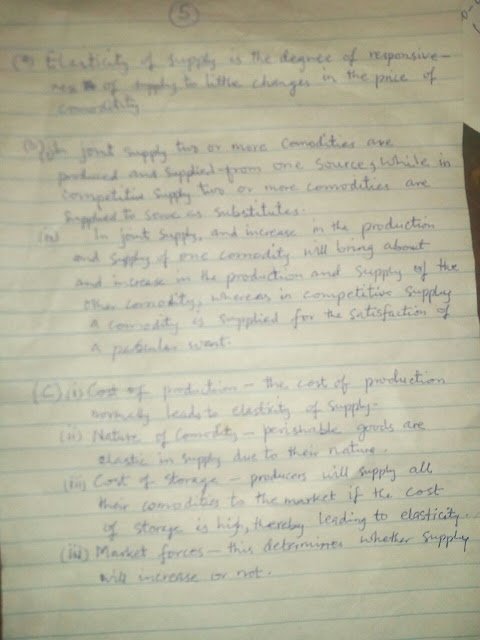 (5)
(a) Elasticity of supply is the degree of responsive-
ness of supply to little changes in the price of
comodity
(b)(i) In joint supply two or more comodities are
produced and supplied from one source, while in
competitive supply two or more comodities are
supplied to serve as substitutes.
(ii) In joint supply, and increase in the production
and supply of one comodity will bring about
and increase in the production and supply of the
other comodity, whereas in competitive supply
a comodity is supplied for the satisfaction of
a particular want.
(C) (i) Cost of production - the cost of production
normally leads to elasticity of supply.
(ii) Nature of Comodity - perishable goods are
elastic in supply due to their nature.
(iii) Cost of storage - producers will supply all
their comodities to the market if the cost
of storage is high, thereby leading to elasticity.
(iii) Market forces - this determines whether supply
will increase or not.